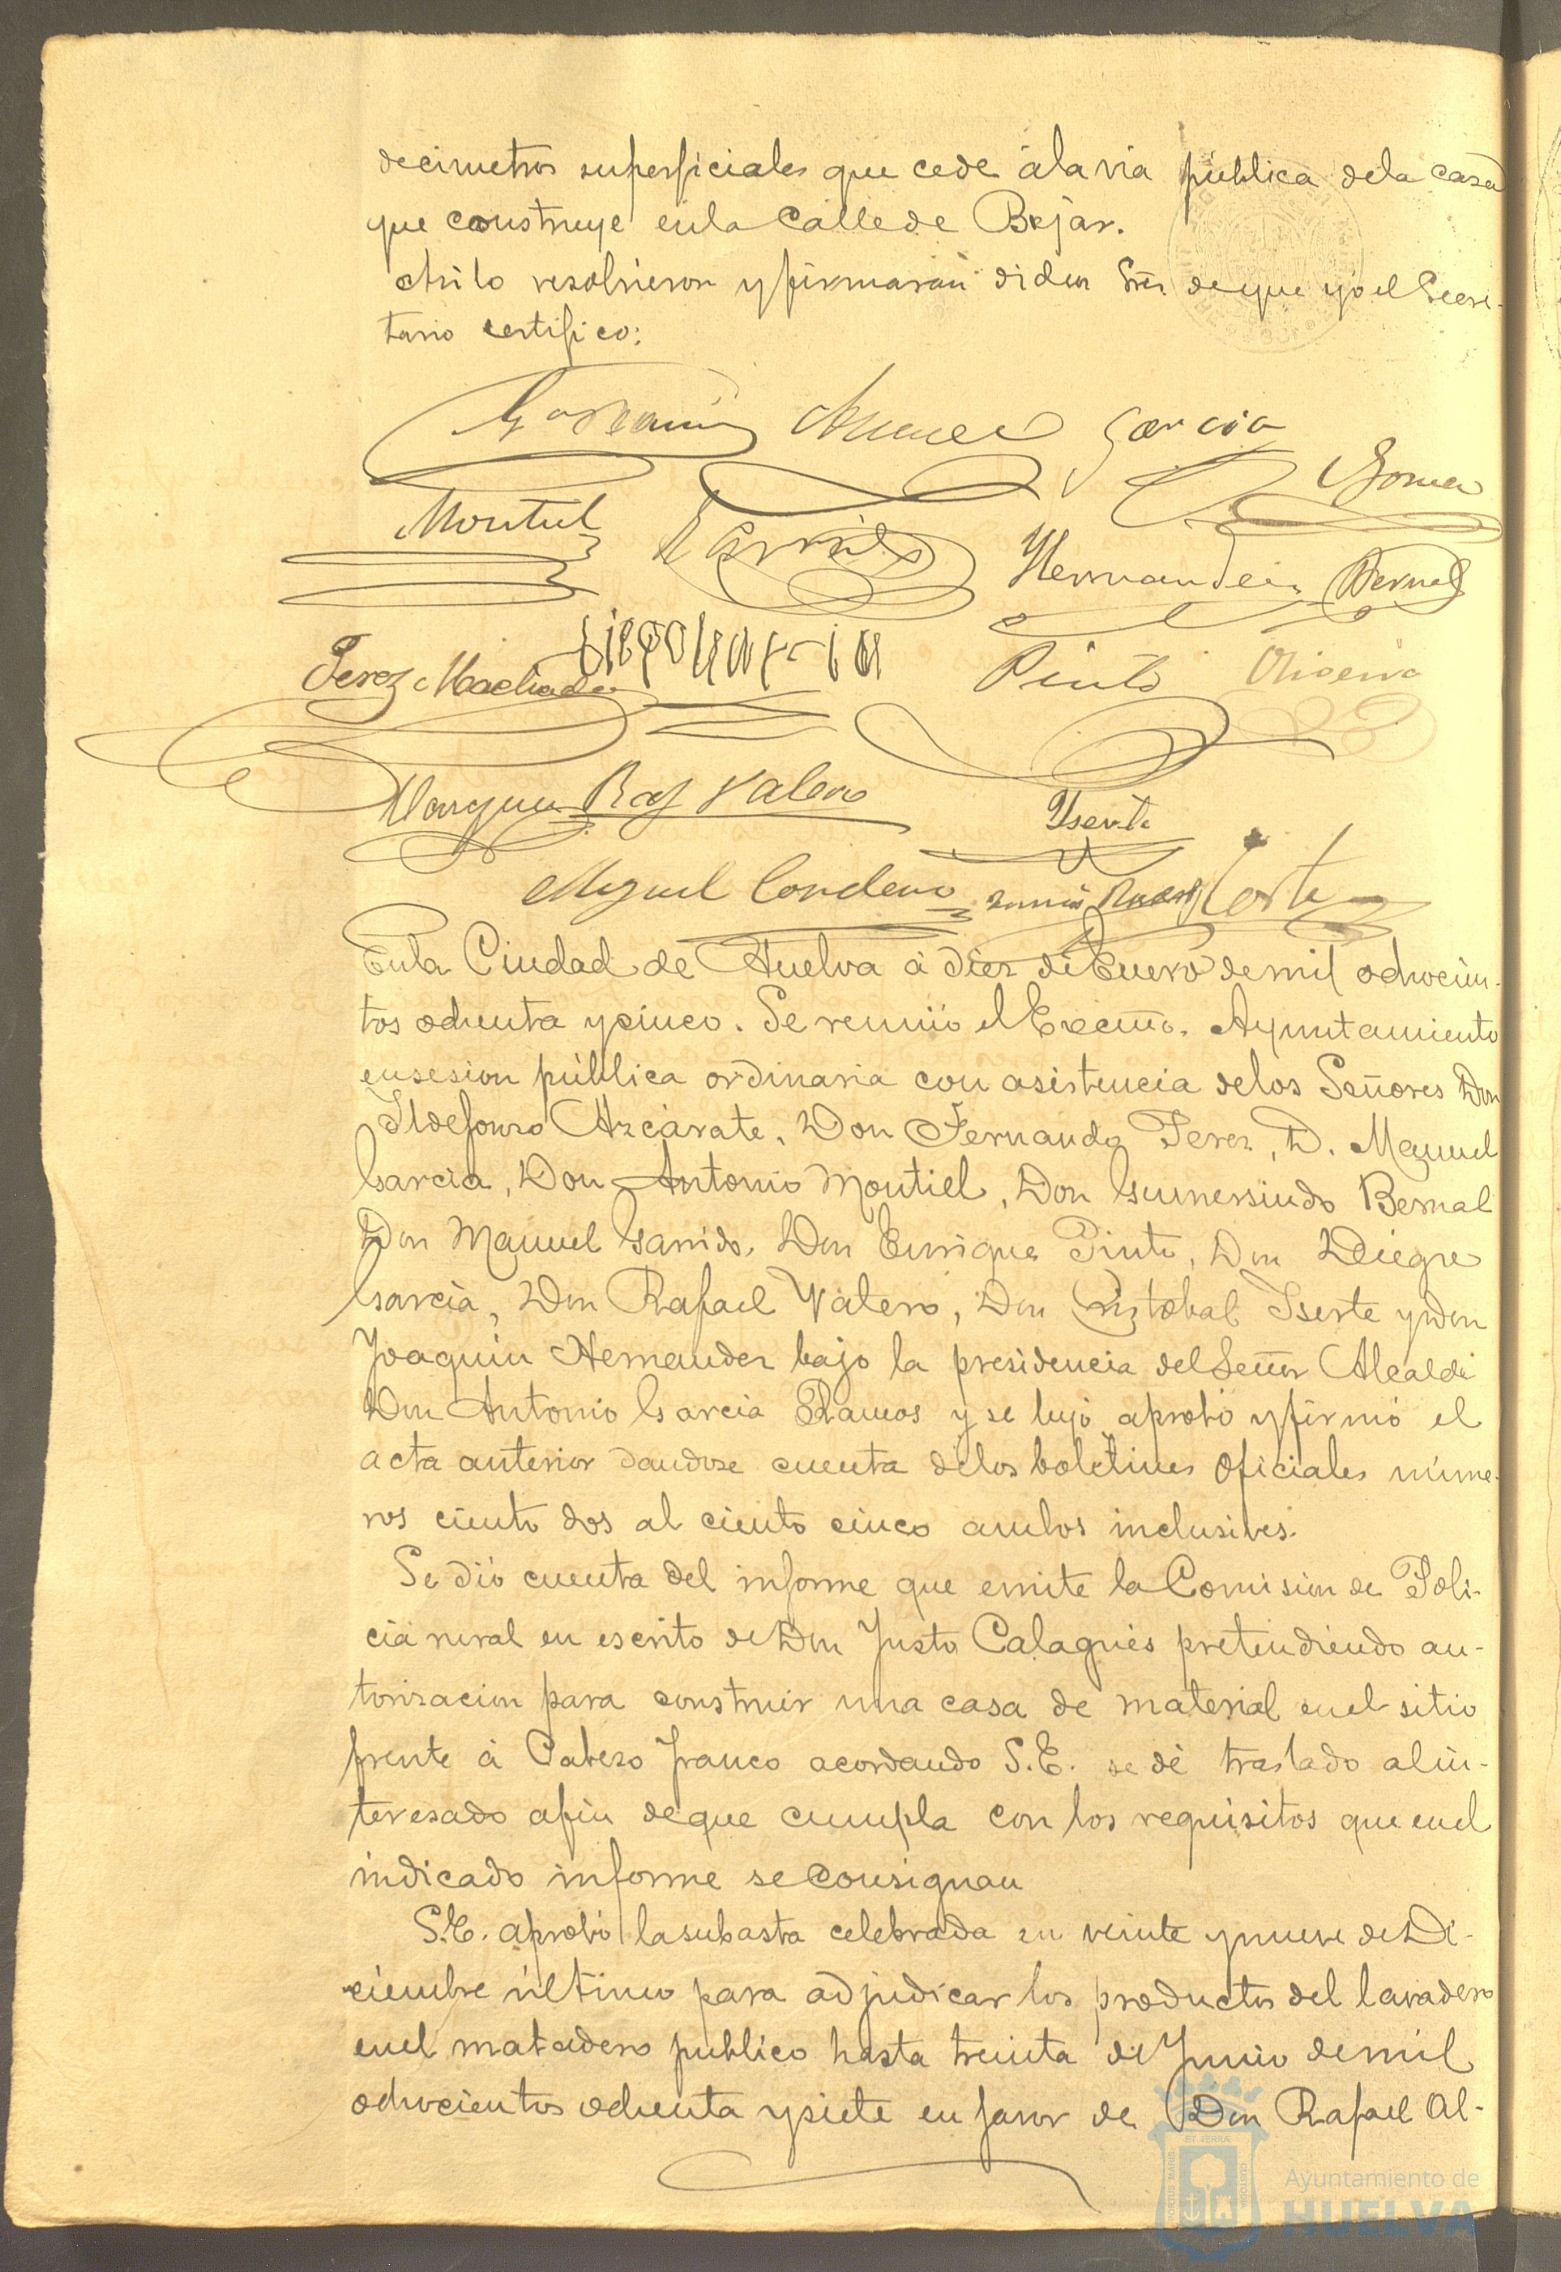 decimetros superficiales que cede à la via pública de la casa
que construye en la Calle de Bejar.
Asi lo resolvieron y firmaran dichos Sres de que yo el Secre-
tario certifico:
Garcia
Gomez
Montiel Garrido Hernandez Bernal
Perez Machado Diego Garcia Pinto Oliveira
Marquez Raf Valero Yserte
Miguel Cordero Corte
En la Ciudad de Huelva à diez de Enero de mil ochocien-
tos ochenta y cinco. Se reunió el Excmo. Ayuntamiento
en sesion pública ordinaria con asistencia de los Señores Don
Ildefonso Azcárate, Don Fernando Perez, D. Manuel
Garcia, Don Antonio Montiel, Don Gumersindo Bernal
Don Manuel Garrido, Don Enrique Pinto, Don Diego
Garcia, Don Rafael Valero, Don Cristobal Iserte y Don
Joaquin Hernandez bajo la presidencia del Señor Alcalde
Don Antonio Garcia Ramos y se leyó aprobó y firmó el
acta anterior dandose cuenta de los boletines oficiales núme-
ros ciento dos al ciento cinco ambos inclusives.
Se dió cuenta del informe que emite la Comision de Poli-
cia rural en escrito de Don Justo Calagués pretendiendo au-
torizacion para construir una casa de material en el sitio
frente à Cabezo franco acordando S.E. se dé traslado al in-
teresado afin de que cumpla con los requisitos que en el
indicado informe se consignan
S.E. aprobó la subasta celebrada en veinte y nueve de Di-
ciembre último para adjudicar los productos del lavadero
en el matadero publico hasta treinta de Junio de mil
ochocientos ochenta y siete en favor de Don Rafael Al-
Ayuntamiento de
HUELVA